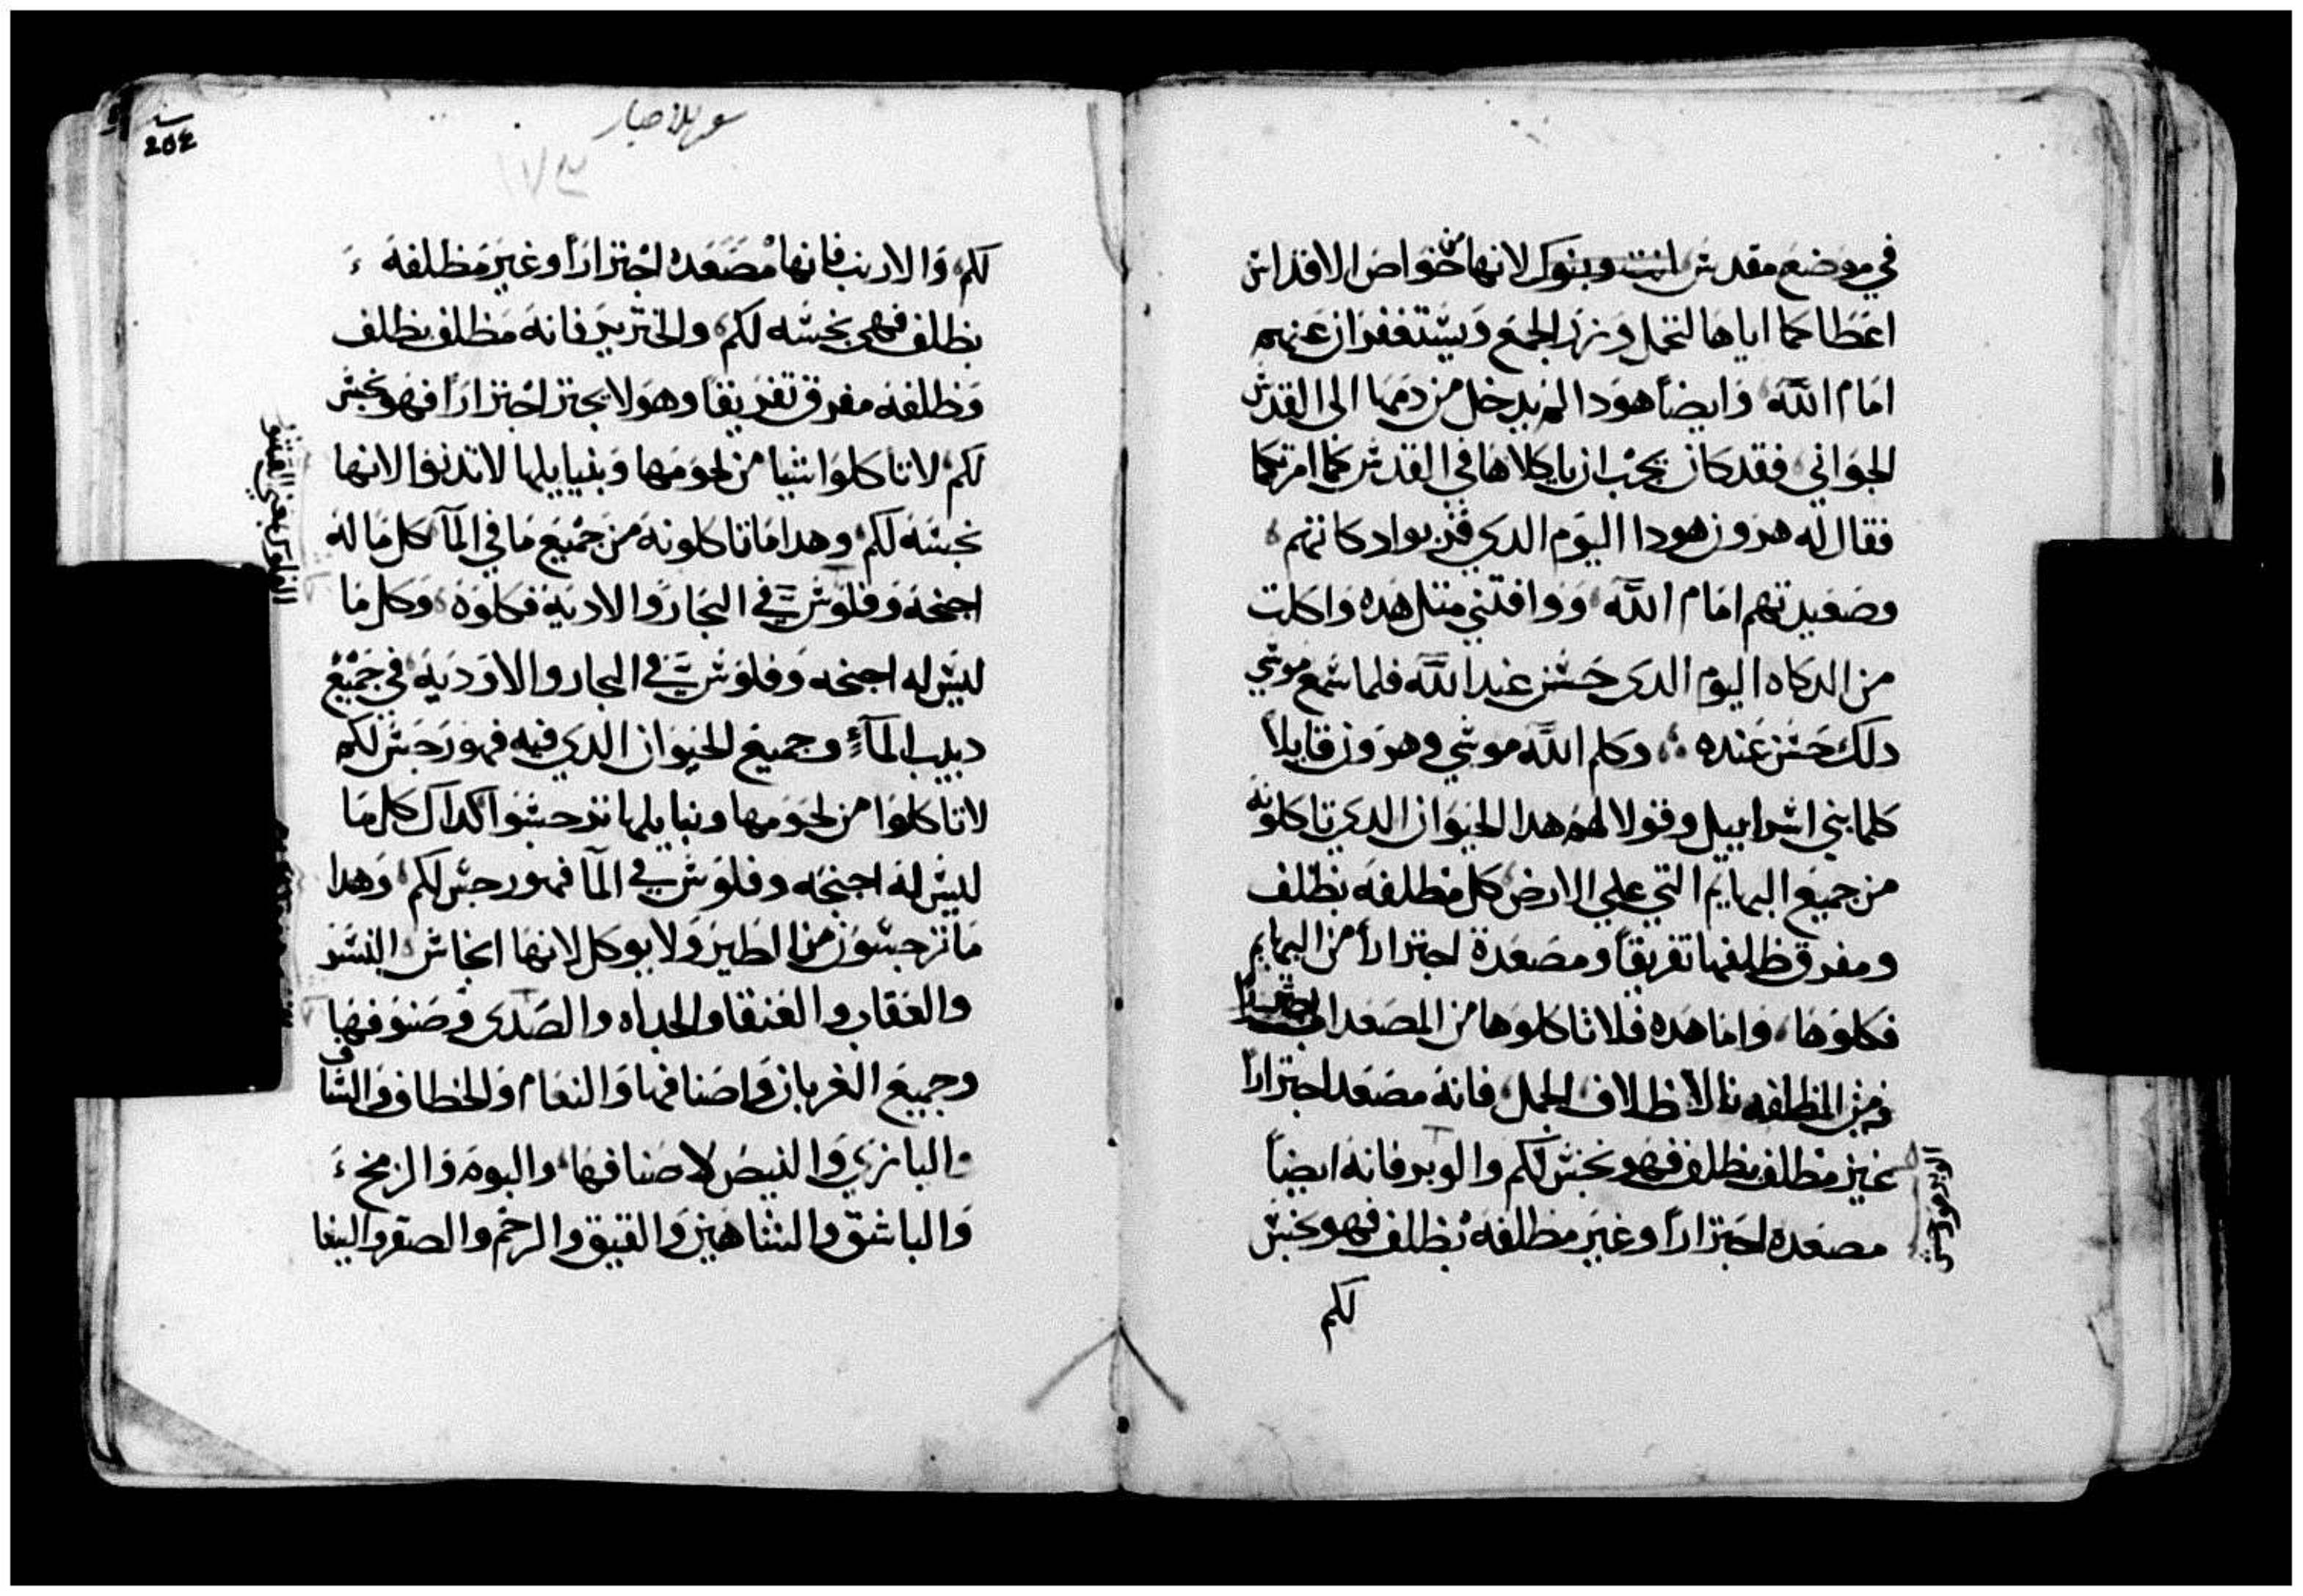 في موضع مقدس انت وبنوك لانها من خواص الاقداس
اعطاكما اياها لتحمل وزر الجمع ويستغفران عنهم
امام الله وايضا هودا لم يدخل من دمها الي القدس
الجواني فقد كان يجب ان ياكلاها في القدس كما امرتكما
فقال له هرون هودا اليوم الدي قربوا دكاتهم
وصعيدتهم امام الله ووافتني متل هده واكلت
من الدكاه اليوم الدي حسن عند الله فلما سمع موسي
دلك حسن عنده وكلم الله موسي وهرون قايلاً
كلما بني اسراييل وقولا لهم هدا الحيوان الدي تاكلونه
من جميع البهايم التي علي الارض كل مظلفه بظلف
ومفرق ظلفها تفريقاً ومصعدة اجتراراً من البهايم
فكلوها واما هده فلا تاكلوها من المصعد
ومن المظلفه بالاظلاف الجمل فانه مصعد اجتراراً
غير مظلف بظلف فهو نجس لكم والوبر فانه ايضاً
مصعده اجتراراً وغير مظلفة بظلف فهو نجس
لكم
سفر الاحبار
١٧٣
لكم والارنب فانها مصعده اجتراراً وغير مظلفه
بظلف فهي نجسه لكم والخنزير فانه مظلف بظلف
وظلفه مفرق تفريقاً وهو لا يجتر اجتراراً فهو نجس
لكم لا تاكلوا شيا من لحومها وبنيايلها لا تدنوا لانها
نجسه لكم وهدا ما تاكلونه من جميع ما في المآ كل ما له
اجنحه وفلوس في البحار والاديه فكلوه وكل ما
ليس له اجنحه وفلوس في البحار والاوديه في جميع
دبيب المآء وجميع الحيوان الدي فيه فهو رجس لكم
لا تاكلوا من لحومها ونبايلها تزحسوا كداك كل ما
ليس له اجنحه وفلوس في المآ فهو رجس لكم وهدا
ما ترجسون من الطير ولا يوكل لانها انجاس النسر
والعقاب والعنقا والحداه والصدي وصنوفها
وجميع الغربان واصنافها والنعام والخطاف والساف
والبازي والبيض لاصنافها والبومه والزمخ
والباشق والشاهين والقيق والرخم والصقر والببغا